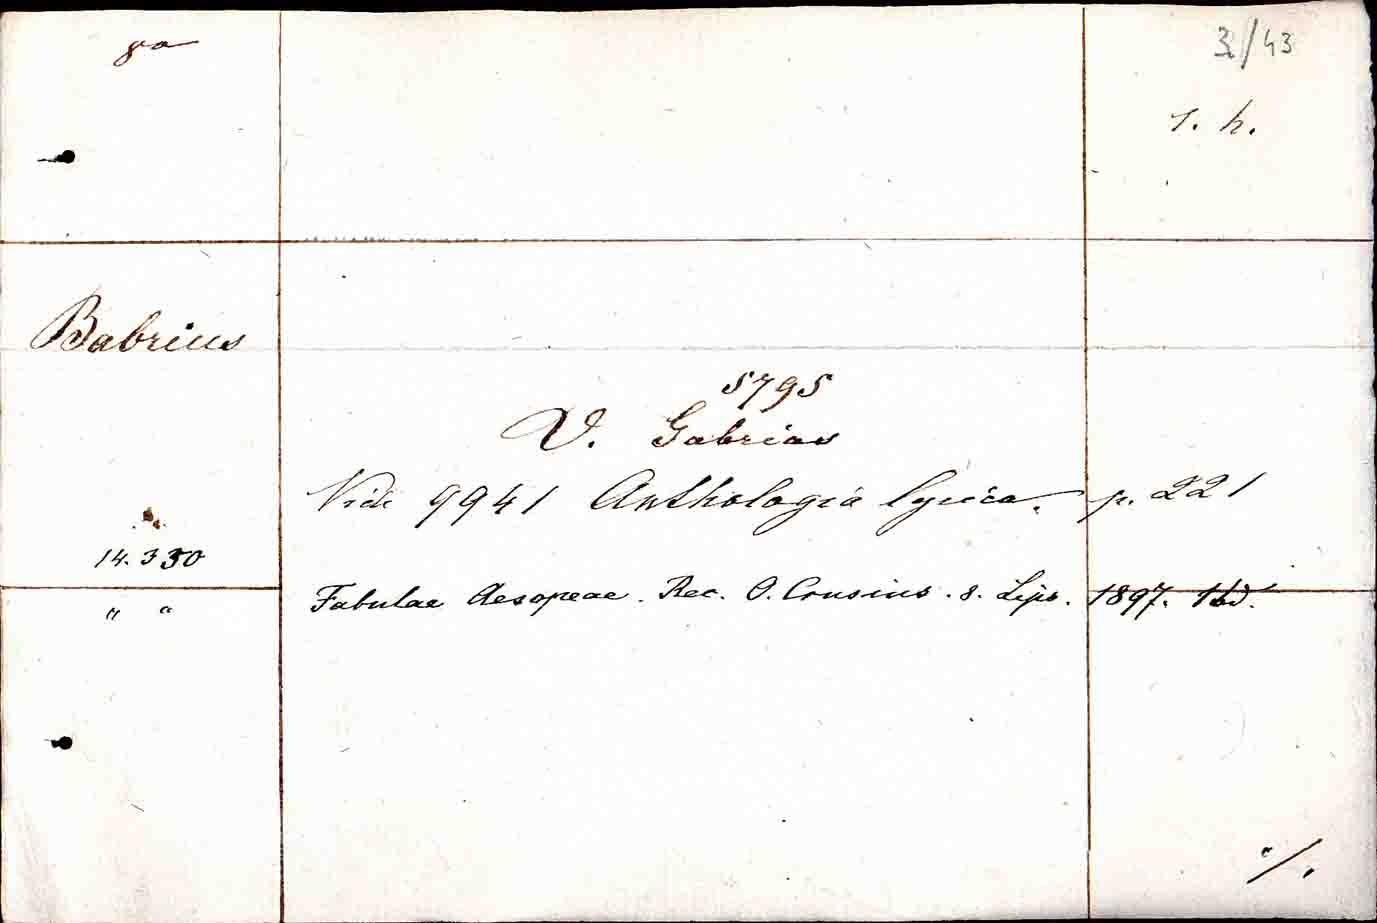 8a
3/43
1. h.
Babrius
5795
V. Gabrias
Vide 9941 Anthologia lyrica. p. 221
14.330
" " Fabulae Aesopeae. Rec. O. Crusius. 8. Lips. 1897. 1 bd.
./.